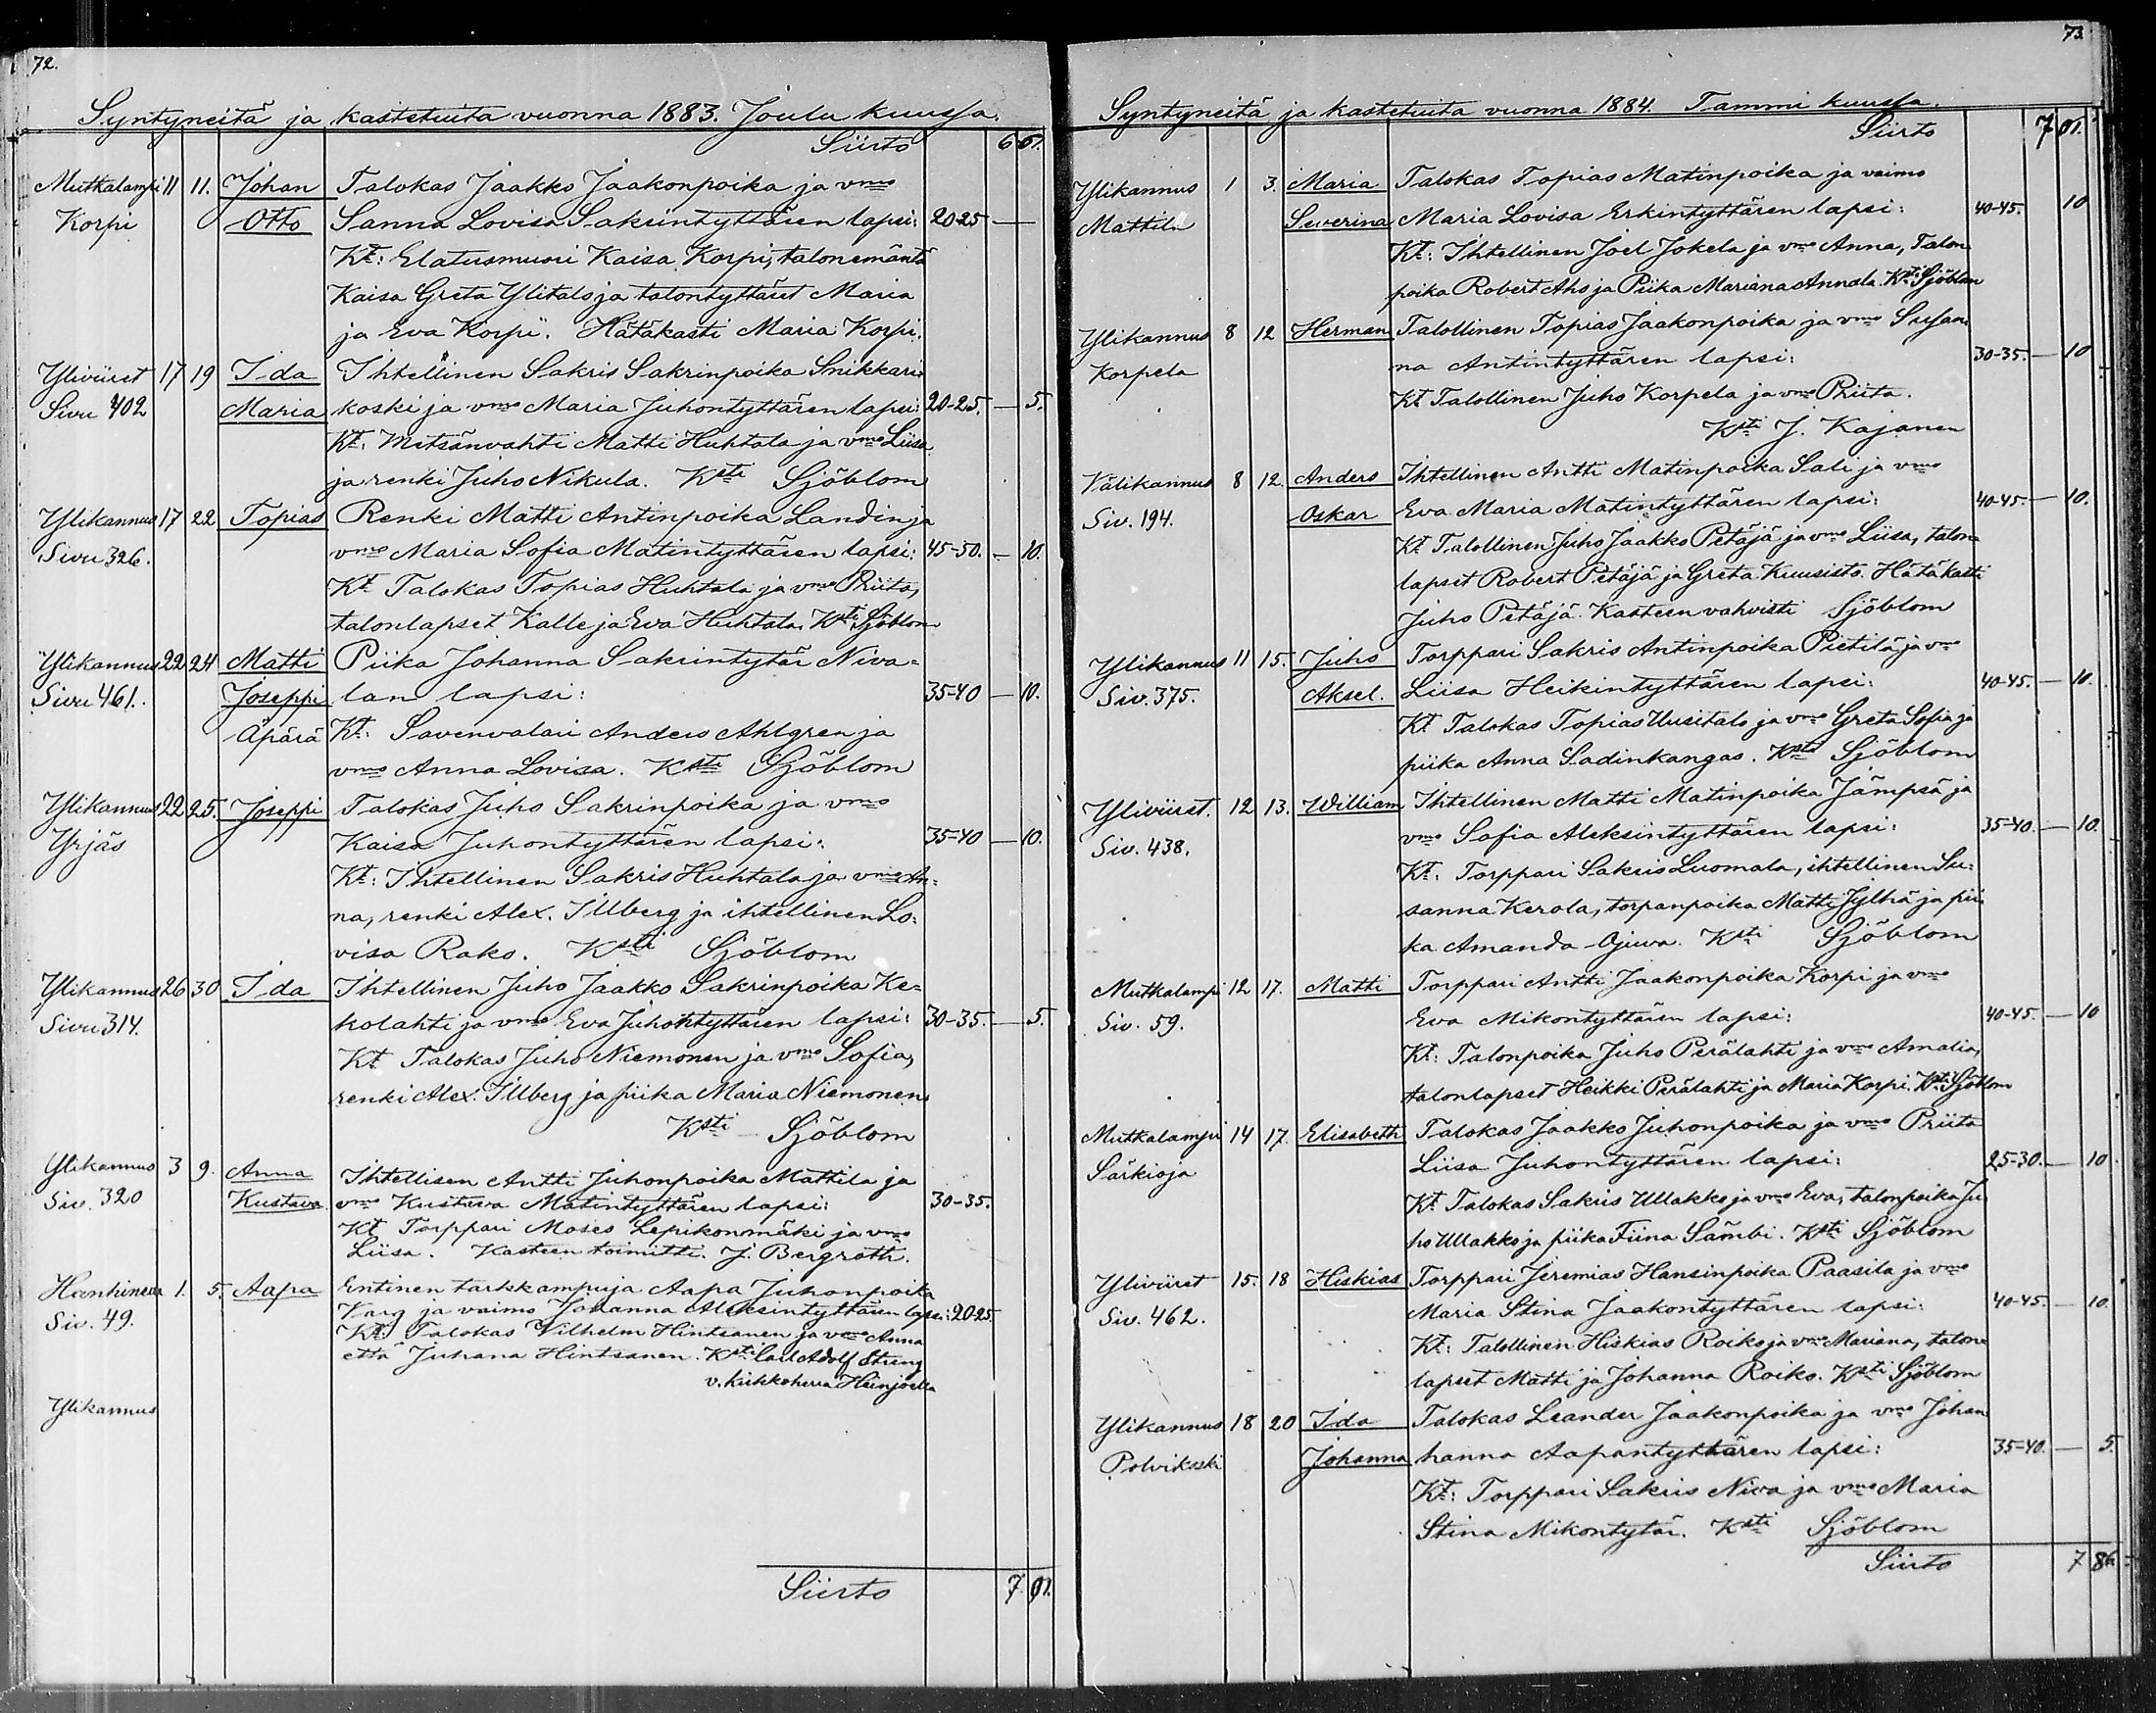 72.
Syntyneitä ja kastetuita vuonna 1883. Joulu kuussa.
Siirto 6 61.
Mutkalampi 11 11. Johan Talokas Jaakko Jaakonpoika ja vmo
Korpi Otto Sanna Lovisa Sakrintyttären lapsi: 20-25 —
Kt: Elatusmuori Kaisa Korpi, talonemäntä
Kaisa Greta Ylitalo ja talontyttäret Maria
ja Eva Korpi. Hätäkasti Maria Korpi.
Yliviiret 17 19 Ida Ihtellinen Sakris Sakrinpoika Snikkari
Sivu 402 Maria koski ja vmo Maria Juhontyttären lapsi: 20-25. — 5.
Kt: Metsänvahti Matti Huhtala ja vmo Liisa
ja renki Juho Nikula. Ksti Sjöblom
Ylikannus 17 22 Topias Renki Matti Antinpoika Landin ja
Sivu 326. vmo Maria Sofia Matintyttären lapsi: 45-50. — 10.
Kt Talokas Topias Huhtala ja vmo Priita,
talonlapset Kalle ja Eva Huhtala. Ksti Sjöblom
Ylikannus 22 24 Matti Piika Johanna Sakrintytär Niva=
Sivu 461. Joseppi lan lapsi: 35-40 — 10.
Äpärä Kt: Savenvalari Anders Ahlgren ja
vmo Anna Lovisa. Ksti Sjöblom
Ylikannus 22 25. Joseppi Talokas Juho Sakrinpoika ja vmo
Yrjäs Kaisa Juhontyttären lapsi: 35-40 — 10.
Kt: Ihtellinen Sakris Huhtala ja vmo An=
na, renki Alex. Illberg ja ihtellinen Lo=
visa Rako. Ksti Sjöblom
Ylikannus 26 30 Ida Ihtellinen Juho Jaakko Sakrinpoika Ke=
Sivu 314. kolahti ja vmo Eva Juhontyttären lapsi: 30-35. — 5.
Kt Talokas Juho Niemonen ja vmo Sofia,
renki Alex. Illberg ja piika Maria Niemonen
Ksti Sjöblom
Ylikannus 3 9. Anna Ihtellisen Antti Juhonpoika Mattila ja
Siv. 320 Kustava vmo Kustava Matintyttären lapsi: 30-35.
Kt Torppari Moses Lepikonmäki ja vmo
Liisa. Kasteen toimitti. J. Bergroth.
1. 5. Aapa Entinen tarkkampuja Aapa Juhonpoika
Siv. 49. Varg ja vaimo Johanna Aleksintyttären lapsi: 20-25.
Kt: Talokas Vilhelm Hintsanen ja vmo Anna
että Juhana Hintsanen. Ksti Carl Adolf Streng
v. kirkkoherra Heinjoella
Ylikannus
Siirto 7 01.
73
Syntyneitä ja kastetuita vuonna 1884. Tammi kuussa.
Siirto 7 01.
Ylikannus 1 3. Maria Talokas Topias Matinpoika ja vaimo
Mattila Severina Maria Lovisa Erkintyttären lapsi: 40-45. 10
Kt: Ihtellinen Joel Jokela ja vmo Anna, Talon
poika Robert Aho ja Piika Mariana Annala. Ksti Sjöblom
Ylikannus 8 12 Herman Talollinen Topias Jaakonpoika ja vmo Susan
Korpela na Antintyttären lapsi: 30-35. — 10
Kt Talollinen Juho Korpela ja vmo Priita.
Ksti J. Kajanen
Välikannus 8 12. Anders Ihtellinen Antti Matinpoika Sali ja vmo
Siv. 194. Oskar Eva Maria Matintyttären lapsi: 40-45. — 10.
Kt Talollinen Juho Jaakko Petäjä ja vmo Liisa, talon=
lapset Robert Petäjä ja Greta Kuusisto. Hätäkasti
Juho Petäjä. Kasteen vahvisti Sjöblom
Ylikannus 11 15. Juho Torppari Sakris Antinpoika Pietilä ja vmo
Siv. 375. Aksel. Liisa Heikintyttären lapsi: 40-45. — 10.
Kt Talokas Topias Uusitalo ja vmo Greta Sofia ja
piika Anna Sadinkangas. Ksti Sjöblom
Yliviiret. 12 13. William Ihtellinen Matti Matinpoika Jämpsä ja
Siv. 438. vmo Sofia Aleksintyttären lapsi: 35-40. — 10.
Kt: Torppari Sakris Luomala, ihtellinen Su=
sanna Kerola, torpanpoika Matti Jylhä ja pii
ka Amanda Ojuva. Ksti Sjöblom
Mutkalampi 12 17. Matti Torppari Antti Jaakonpoika Korpi ja vmo
Siv. 59. Eva Mikontyttären lapsi: 40-45. — 10
Kt: Talonpoika Juho Perälahti ja vmo Amalia,
talonlapset Heikki Perälahti ja Maria Korpi. Ksti Sjöblom
Mutkalampi 14 17. Elisabeth Talokas Jaakko Juhonpoika ja vmo Priita
Särkioja Liisa Juhontyttären lapsi: 25-30. — 10
Kt Talokas Sakris Ullakko ja vmo Eva, talonpoika Ju
ho Ullakko ja piika Fiina Sämbi. Ksti Sjöblom
Yliviiret 15. 18 Hiskias Torppari Jeremias Hansinpoika Paasila ja vmo
Siv. 462. Maria Stina Jaakontyttären lapsi: 40-45. — 10.
Kt: Talollinen Hiskias Roiko ja vmo Mariana, talon=
lapset Matti ja Johanna Roiko. Ksti Sjöblom
Ylikannus 18 20 Ida Talokas Leander Jaakonpoika ja vmo Johan
Polvikoski Johanna hanna Aapantyttären lapsi: 35-40. — 5.
Kt: Torppari Sakris Niva ja vmo Maria
Stina Mikontytär. Ksti Sjöblom
Siirto 7 86